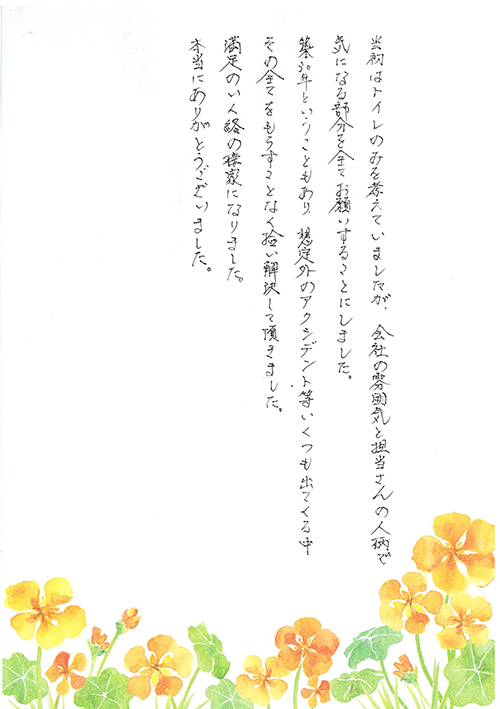 当初はトイレのみを考えていましたが、会社の雰囲気と担当さんの人柄で
気になる部分を全てお願いすることにしました。
築30年ということもあり、想定外のアクシデント等いくつも出てくる中
その全てをもらすことなく拾い解決して頂きました。
満足のいく終の棲家になりました。
本当にありがとうございました。